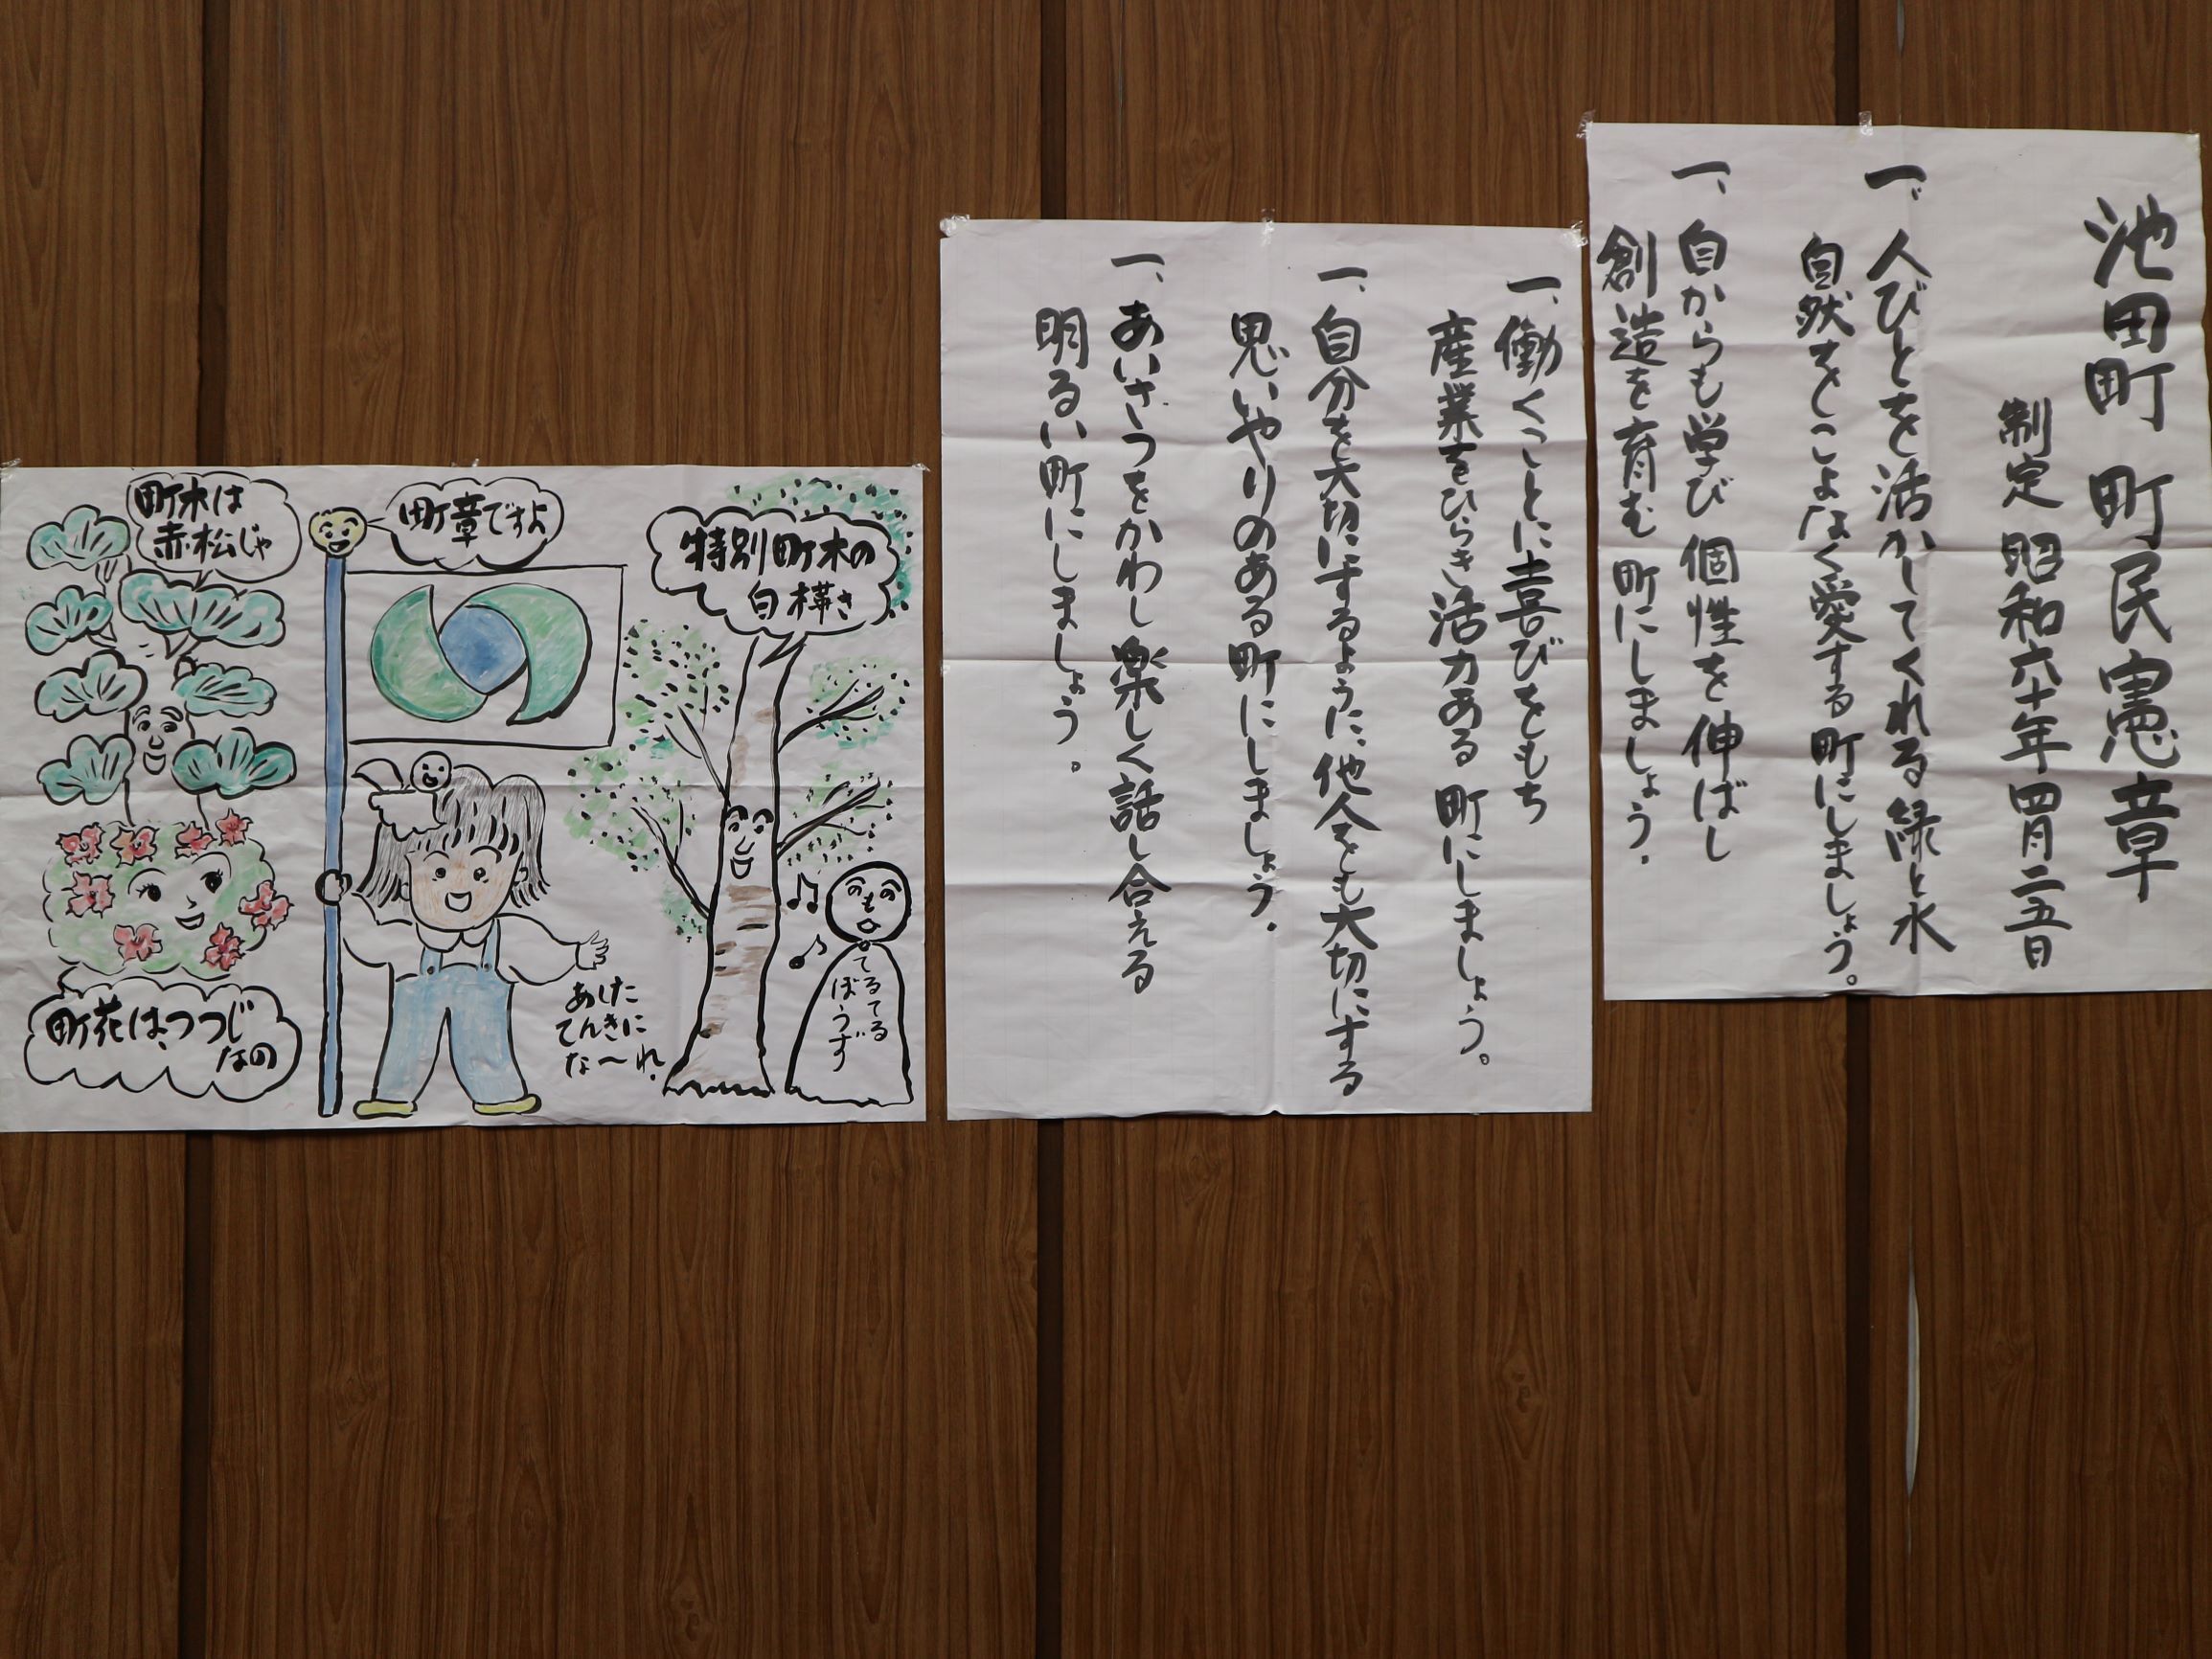 池田町 町民憲章
制定 昭和六十年四月二五日
一、人びとを活かしてくれる緑と水
自然をこよなく愛する町にしましょう。
一、自からも学び個性を伸ばし
創造を育む町にしましょう。
一、働くことに喜びをもち
産業をひらき活力ある町にしましょう。
一、自分を大切にするように、他人をも大切にする
思いやりのある町にしましょう。
一、あいさつをかわし楽しく話し合える
明るい町にしましょう。
特別町木の
白樺さ
町章ですよ
町木は
赤松じゃ
てるてる
ぼうず
あした
てんきに
な〜れ
町花は、つつじ
なの